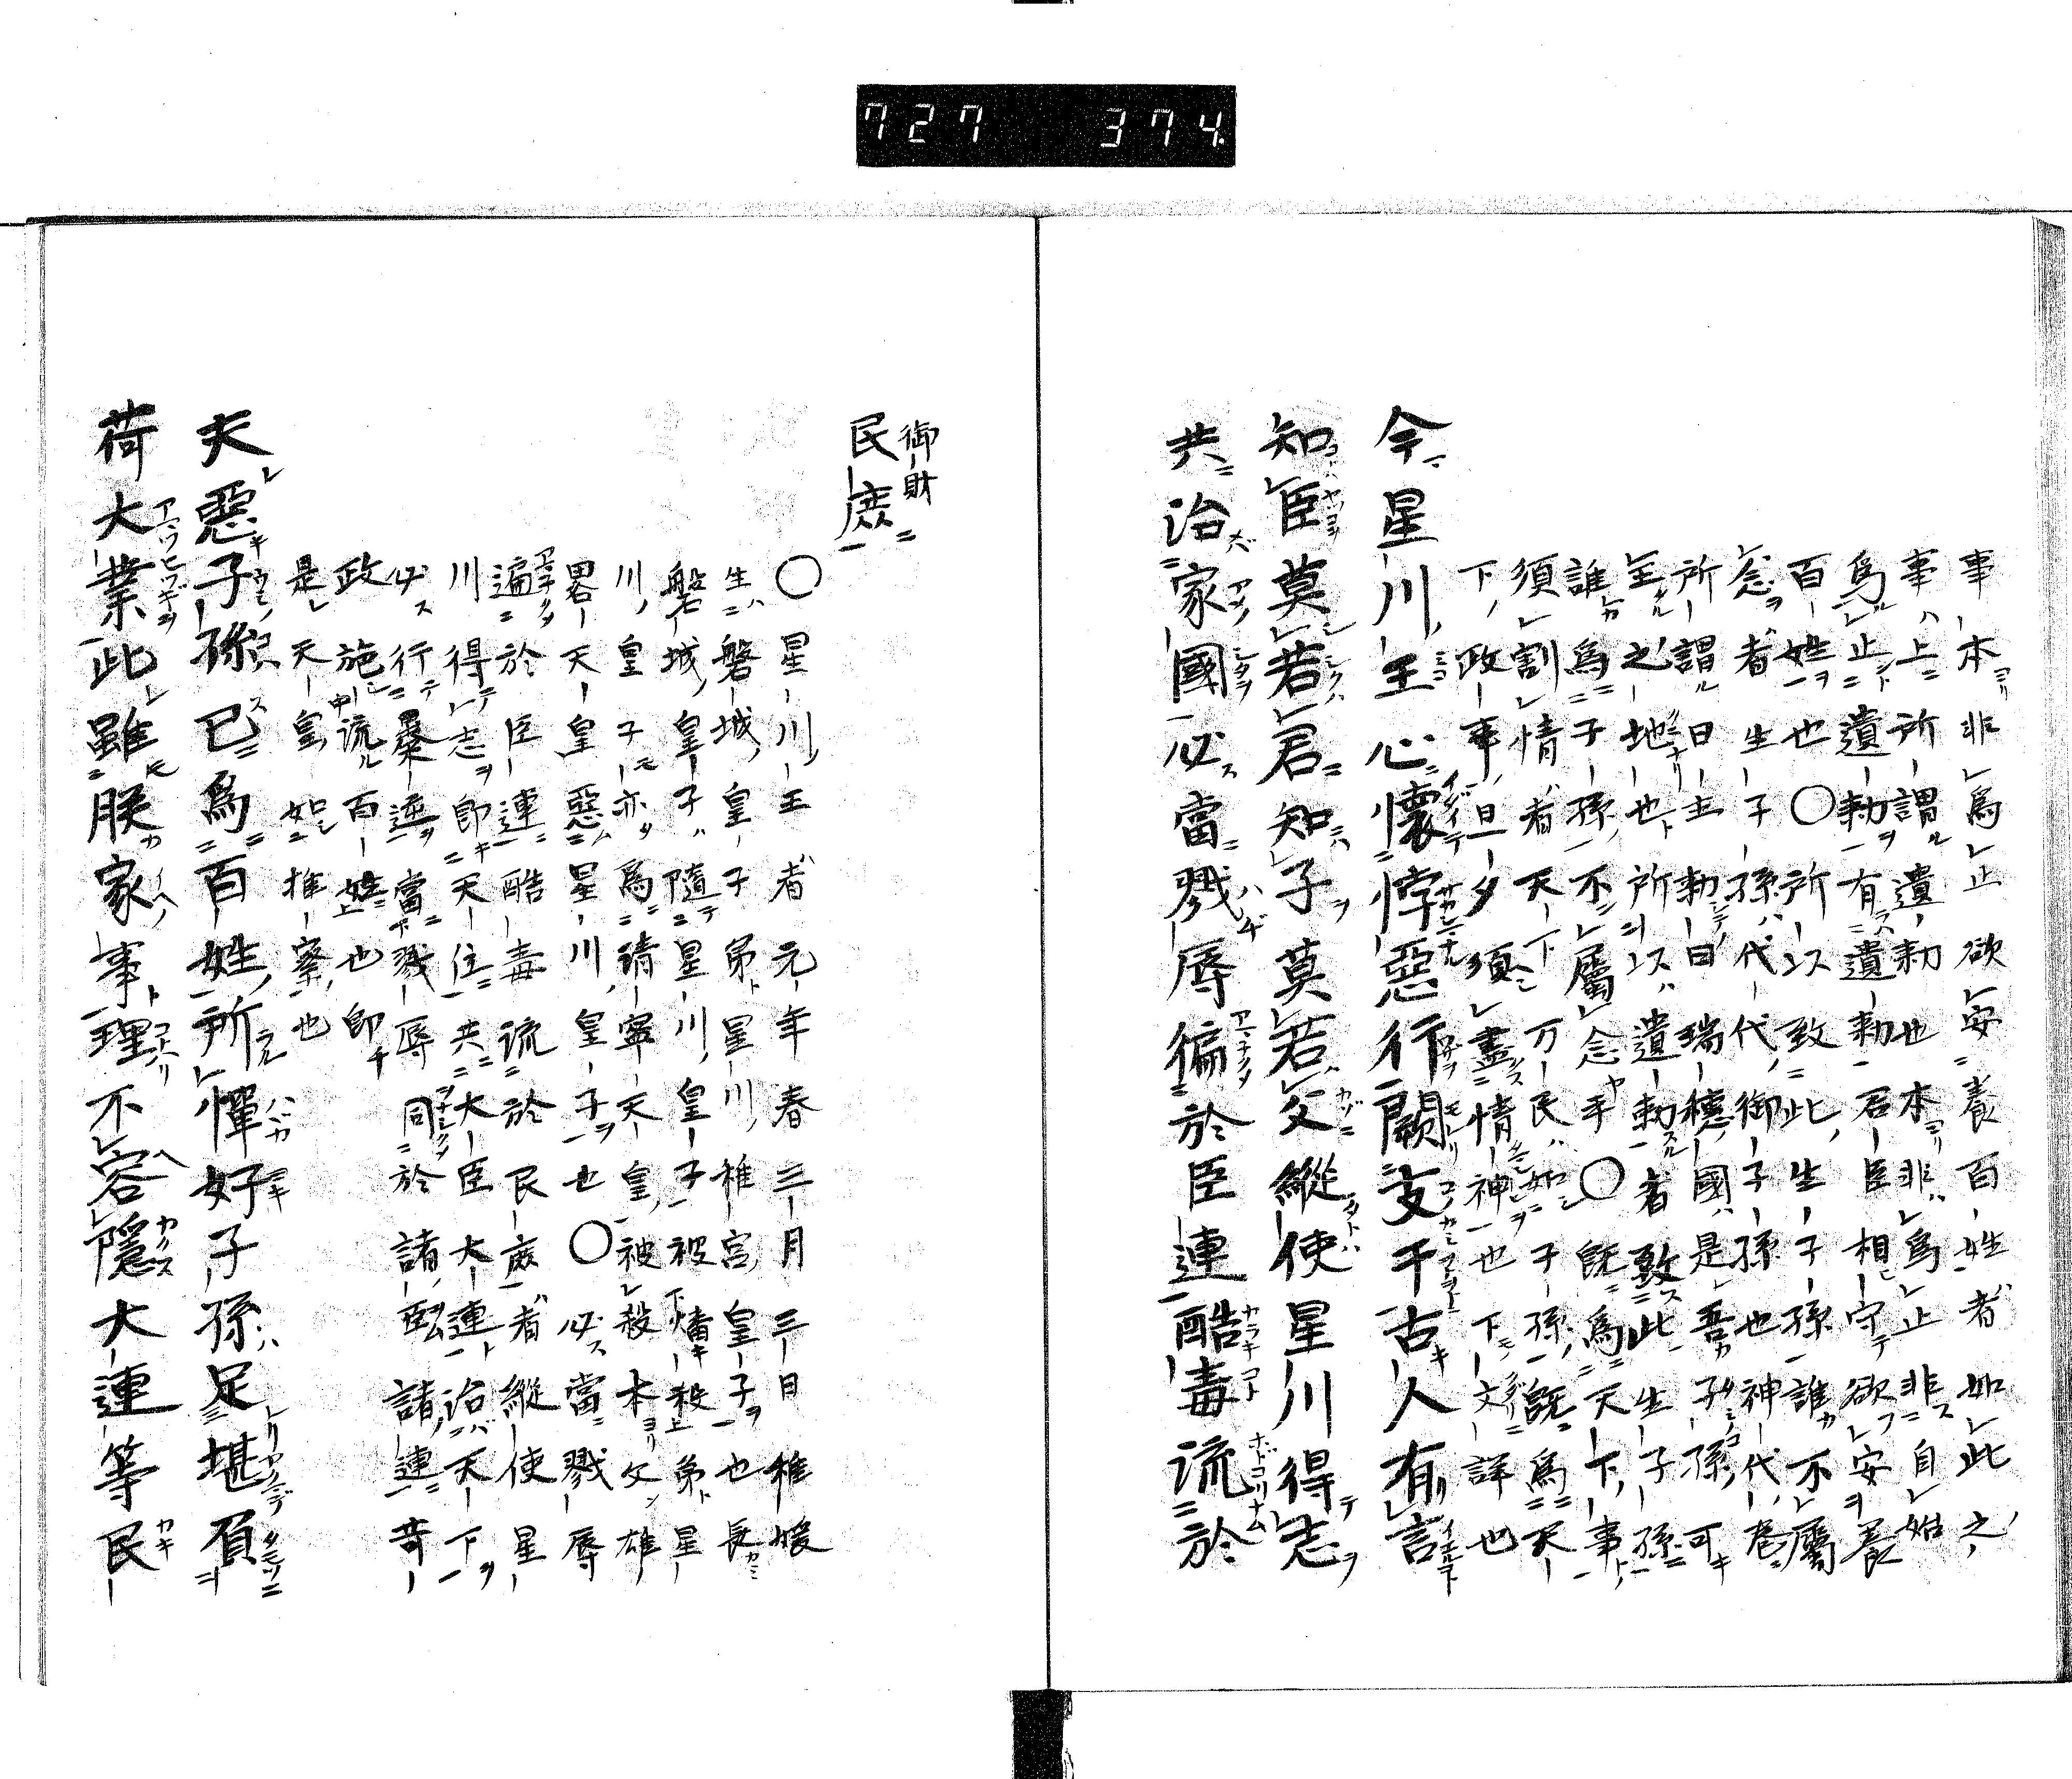 727 374
事本非為止欲安養百姓者如此之
事上所謂遺勅也本非為止非自始
為止遺勅有遺勅君臣相守欲安養
百姓也〇所以致此生子孫誰不屬
念者生子孫代代御子孫也神代巻
所謂曰主勅曰瑞穂國是吾子孫可
王之地也所以遺勅者致此生子孫
誰為子孫不屬念乎〇既為天下事
須割情者天下万民如子孫既為天
下政事旦夕須盡情神也下文詳也
今星川王心懷悖惡行闕友于古人有言
知臣莫若君知子莫若父縱使星川得志
共治家國必當戮辱徧於臣連酷毒流於
民庶
御財
〇星川王者元年春三月三日稚媛
生磐城皇子弟星川稚宮皇子也長
磐城皇子隨星川皇子被燔殺弟星
川皇子亦為請寧天皇被殺本父雄
畧天皇惡星川皇子也〇必當戮辱
遍於臣連酷毒流於民庶者縱使星
川得志即天位共大臣大連治天下
必行暴逆當戮辱同於諸臣諸連苛
政施流百姓也即
是天皇如推察也
夫惡子孫已為百姓所憚好子孫足堪負
荷大業此雖朕家事理不容隱大連等民